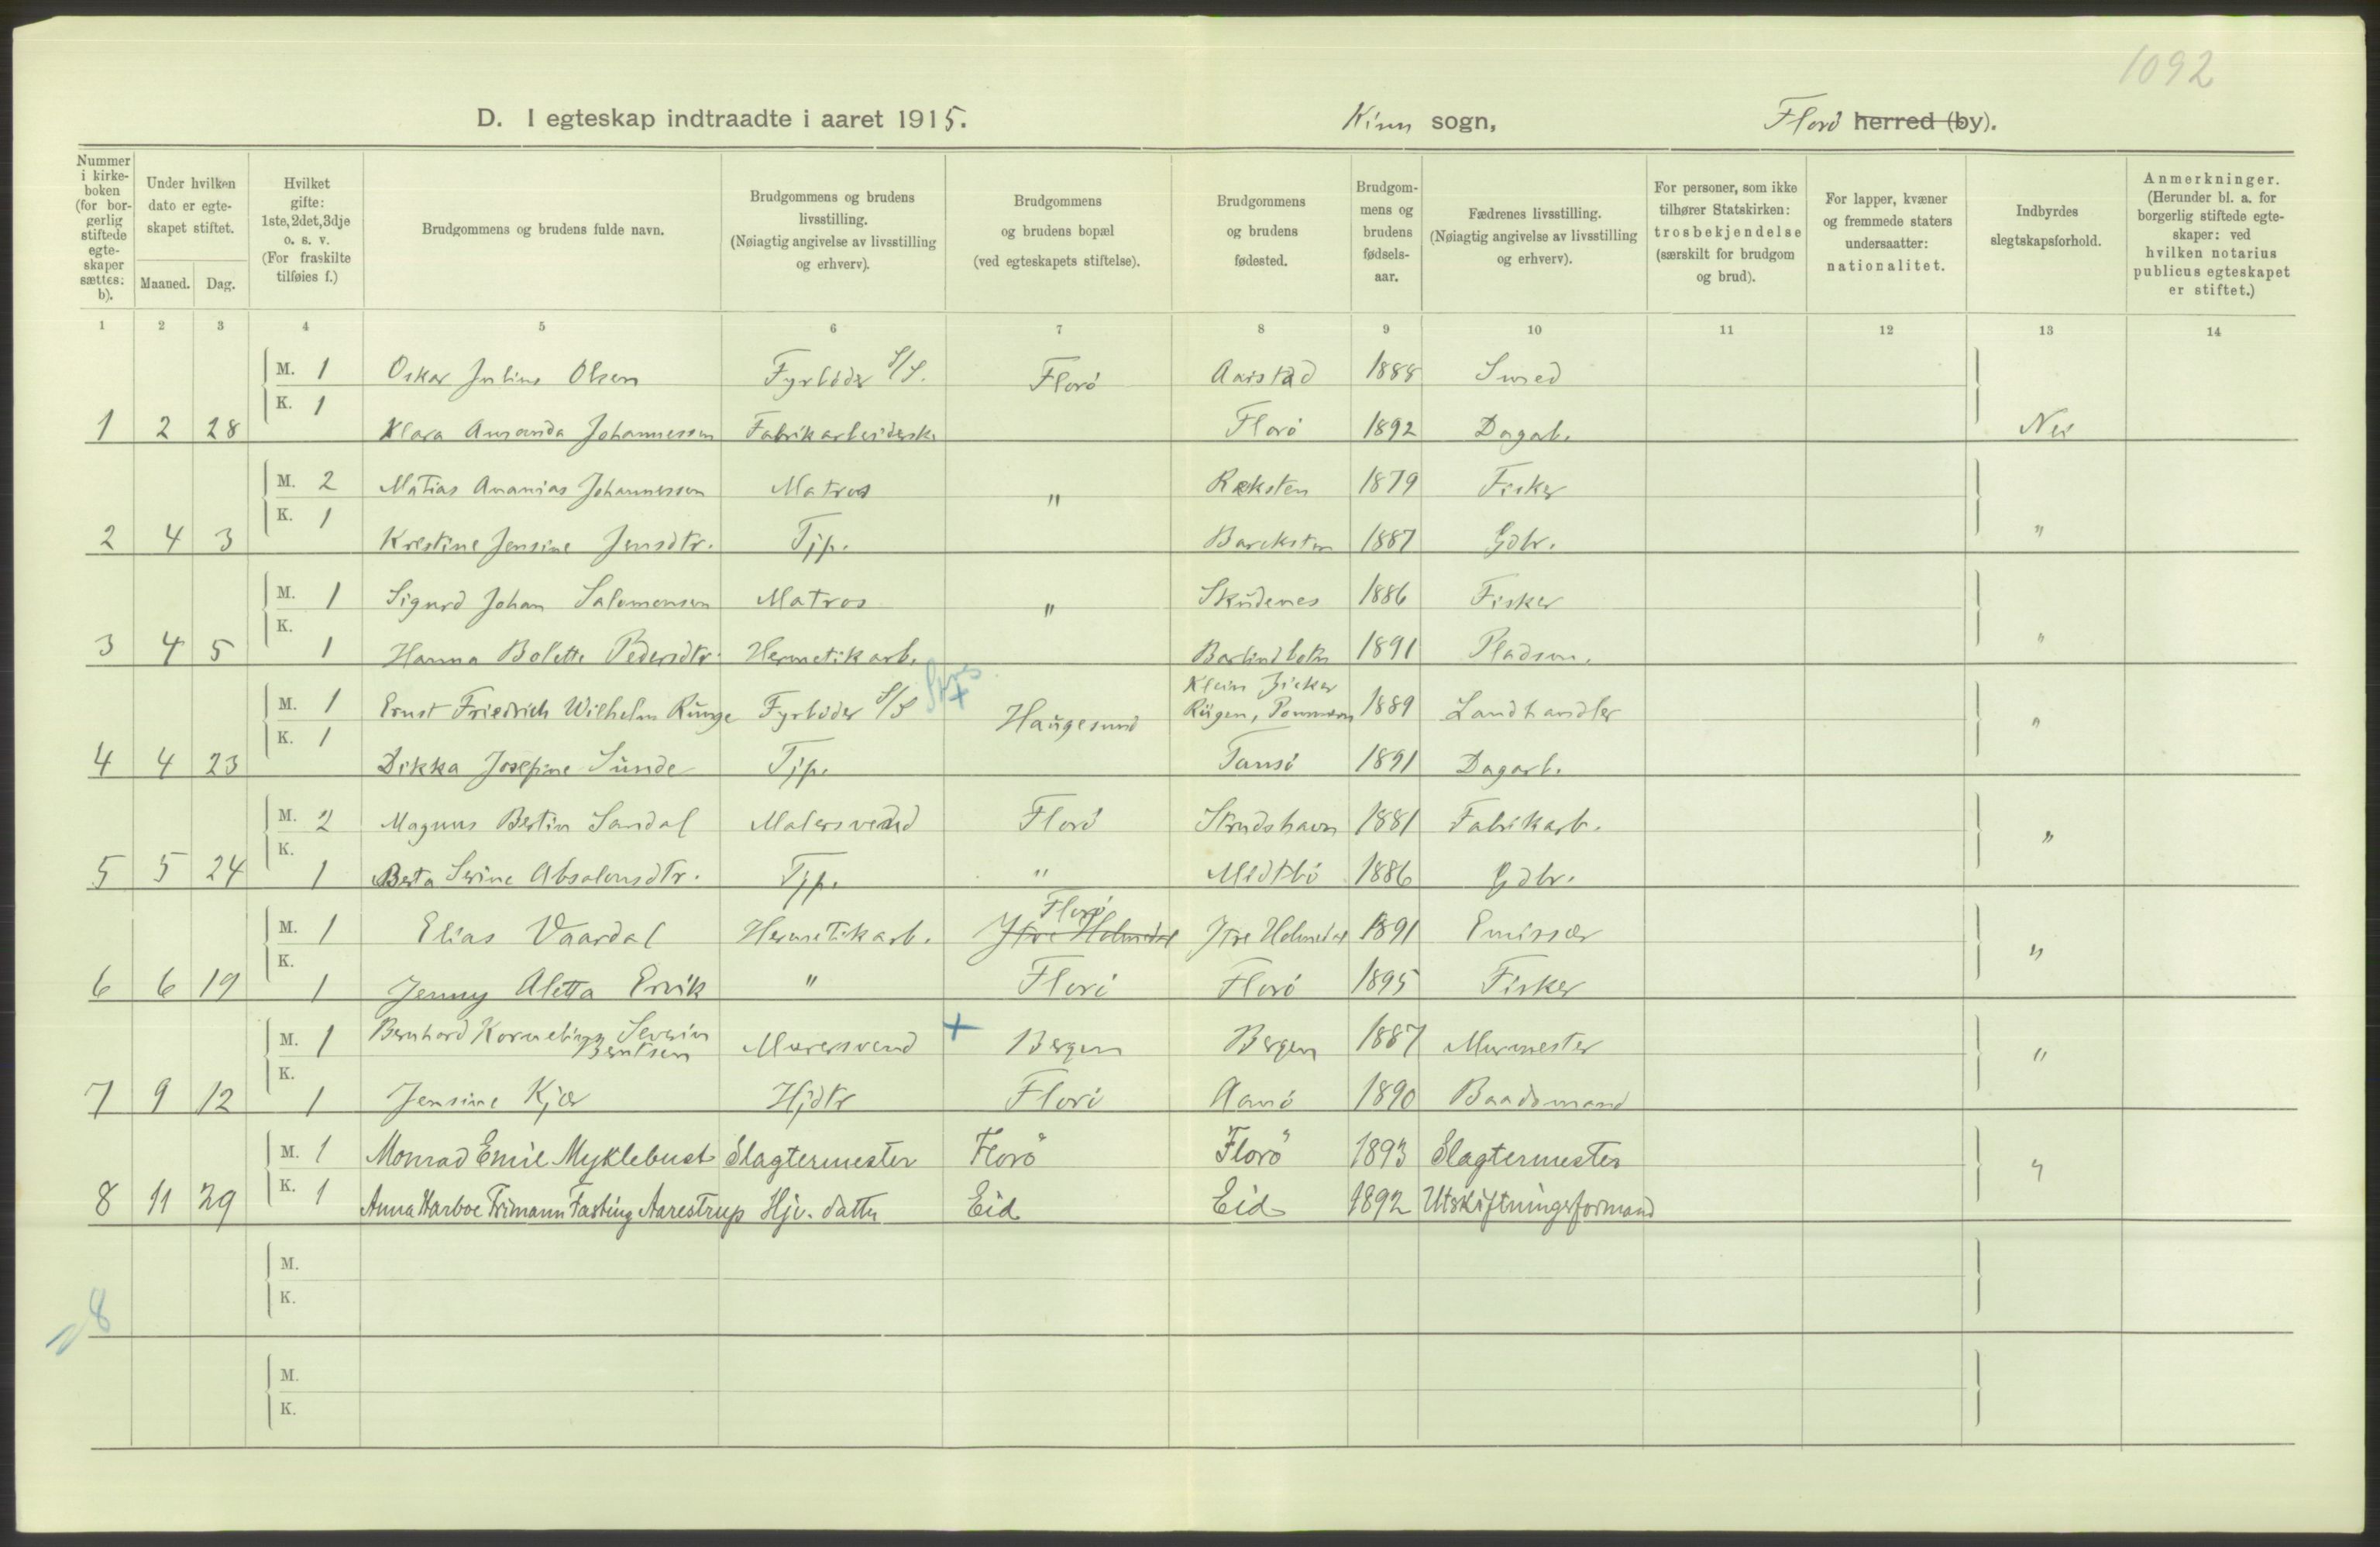 1092
D. I egteskap indtraadte i aaret 1915. Kinn sogn, Florö herred (by).
Nummer i kirkeboken (for borgerlig stiftede egteskaper sættes: b).
Under hvilken dato er egteskapet stiftet.
Maaned. Dag.
Hvilket gifte: 1ste, 2det, 3dje o. s. v. (For fraskilte tilføies f.)
Brudgommens og brudens fulde navn.
Brudgommens og brudens livsstilling. (Nøiagtig angivelse av livsstilling og erhverv).
Brudgommens og brudens bopæl (ved egteskapets stiftelse).
Brudgommens og brudens fødested.
Brudgommens og brudens fødselsaar.
Fædrenes livsstilling. (Nøiagtig angivelse av livsstilling og erhverv).
For personer, som ikke tilhører Statskirken: trosbekjendelse (særskilt for brudgom og brud).
For lapper, kvæner og fremmede staters undersaatter: nationalitet.
Indbyrdes slegtskapsforhold.
Anmerkninger. (Herunder bl. a. for borgerlig stiftede egteskaper: ved hvilken notarius publicus egteskapet er stiftet.)
1 2 3 4 5 6 7 8 9 10 11 12 13 14
M. 1 Oskar Julius Olsen Fyrböder S/S. Florö Aarstad 1888 Smed
K. 1
1 2 28 Klara Amanda Johannessen Fabrikarbeiderske Florö 1892 Dagarb. Nei
M. 2 Matias Ananias Johannessen Matros " Ræksten 1879 Fisker
K. 1
2 4 3 Kristine Jensine Jensdtr. Tjp. Bareksten 1887 Gdbr. "
M. 1 Sigurd Johan Salomonsen Matros " Skudenes 1886 Fisker
K.
3 4 5 1 Hanna Bolette Pedersdtr. Hermetikarb. 1891 Pladsm. "
M. 1 Ernst Friedrich Wilhelm Runge Fyrböder S/S + Haugesund Klein Zicker
Rügen, Pommern 1889 Landhandler "
K. 1
4 4 23 Dikka Josefine Sunde Tjp. Tansö 1891 Dagarb.
M. 2 Magnus Bertin Sandal Malersvend Florö 1881 Fabrikarb. "
K.
5 5 24 1 Berta Serine Absalonsdtr. Tjp. " Midtbö 1886 Gdbr.
Florö
M. 1 Elias Vaardal Hermetikarb. Ytre Holmedal Ytre Holmedal 1891 Emissær "
K.
6 6 19 1 Jenny Aletta Ervik " Florö Florö 1895 Fisker
M. 1 Bernhard Kornelius Severin
Berntsen Murersvend + Bergen Bergen 1887 Murmester "
K.
7 9 12 1 Jensine Kjær Hjdtr Florö Aanö 1890 Baadsmand
M. 1 Monrad Emil Myklebust Slagtermester Florö Florö 1893 Slagtermester "
K. 1
8 11 29 Anna Harboe Frimann Fasting Aarestrup Hjv. datter Eid Eid 1892 Utskiftningsformand
M.
K.
8
M.
K.